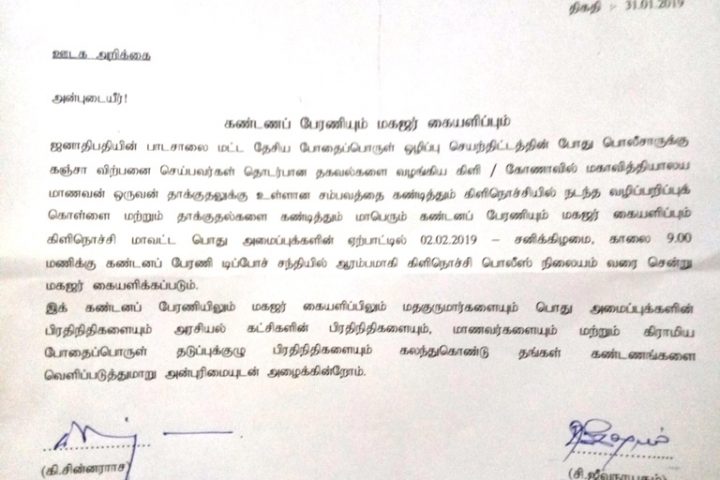 திகதி :- 31.01.2019
ஊடக அறிக்கை
அன்புடையீர்!
கண்டணப் பேரணியும் மகஜர் கையளிப்பும்
ஜனாதிபதியின் பாடசாலை மட்ட தேசிய போதைப்பொருள் ஒழிப்பு செயற்திட்டத்தின் போது பொலீசாருக்கு
கஞ்சா விற்பனை செய்பவர்கள் தொடர்பான தகவல்களை வழங்கிய கிளி / கோணாவில் மகாவித்தியாலய
மாணவன் ஒருவன் தாக்குதலுக்கு உள்ளான சம்பவத்தை கண்டித்தும் கிளிநொச்சியில் நடந்த வழிப்பறிப்புக்
கொள்ளை மற்றும் தாக்குதல்களை கண்டித்தும் மாபெரும் கண்டனப் பேரணியும் மகஜர் கையளிப்பும்
கிளிநொச்சி மாவட்ட பொது அமைப்புக்களின் ஏற்பாட்டில் 02.02.2019 – சனிக்கிழமை, காலை 9.00
மணிக்கு கண்டனப் பேரணி டிப்போச் சந்தியில் ஆரம்பமாகி கிளிநொச்சி பொலீஸ் நிலையம் வரை சென்று
மகஜர் கையளிக்கப்படும்.
இக் கண்டனப் பேரணியிலும் மகஜர் கையளிப்பிலும் மதகுருமார்களையும் பொது அமைப்புக்களின்
பிரதிநிதிகளையும் அரசியல் கட்சிகளின் பிரதிநிதிகளையும், மாணவர்களையும் மற்றும் கிராமிய
போதைப்பொருள் தடுப்புக்குழு பிரதிநிதிகளையும் கலந்துகொண்டு தங்கள் கண்டணங்களை
வெளிப்படுத்துமாறு அன்புரிமையுடன் அழைக்கின்றோம்.
(கி.சின்னராசா)
(சி.ஜீவநாயகம்)